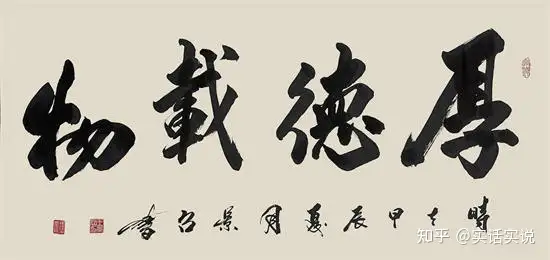 厚德載物
時在甲辰夏月景召書
知乎 @实话实说